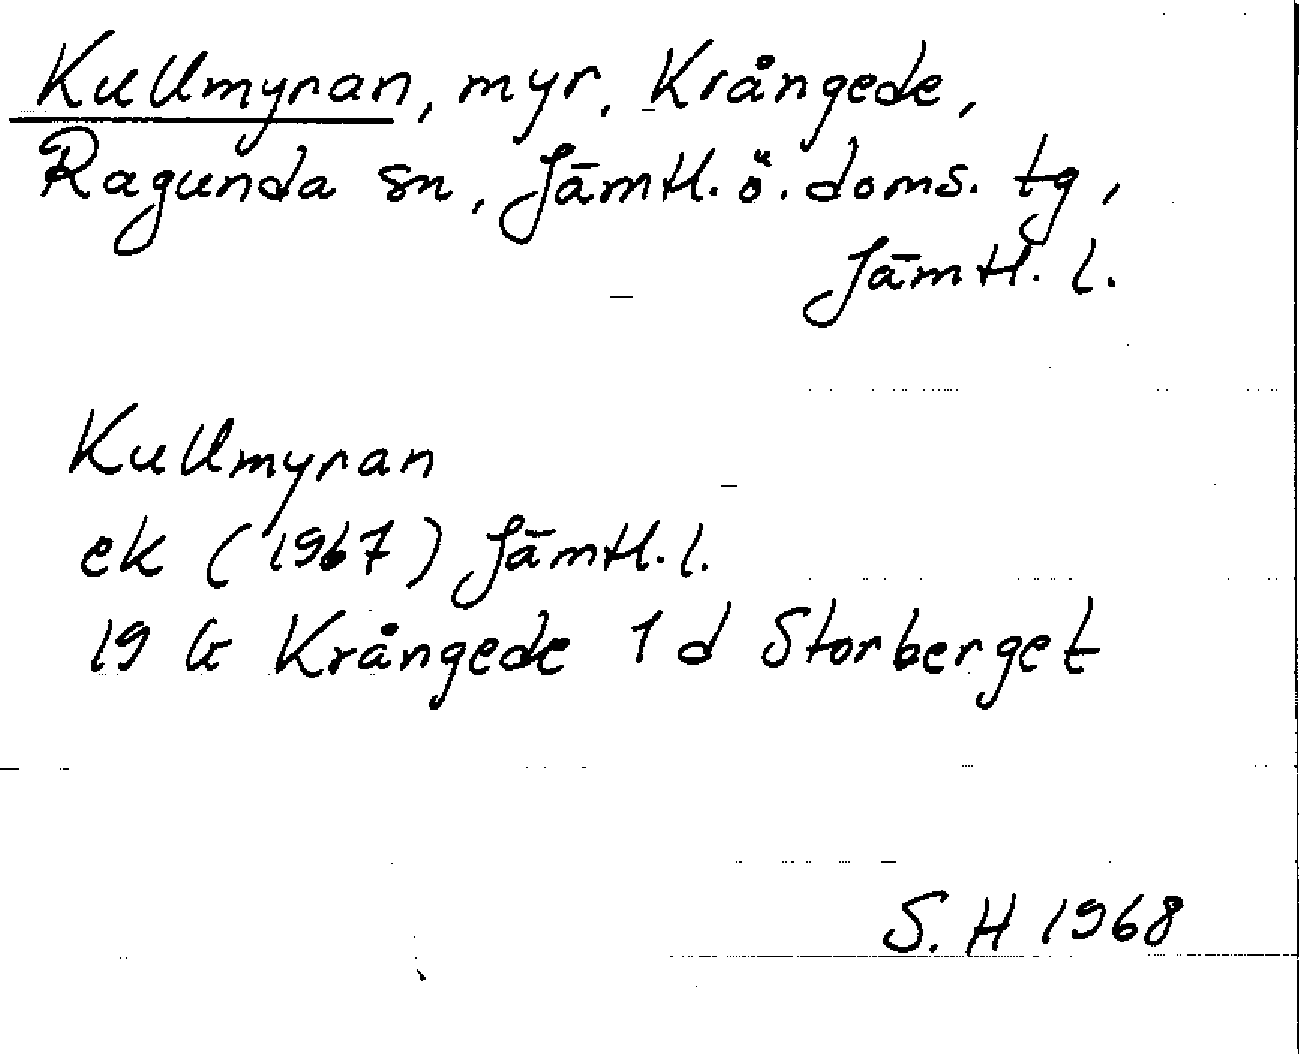 Kullmyran, myr, Krångede,
Ragunda sn, Jämtl. ö. doms. tg,
Jämtl. l.
Kullmyran
ek (1967) Jämtl. l.
19 G Krångede 1 d Storberget
S. H 1968